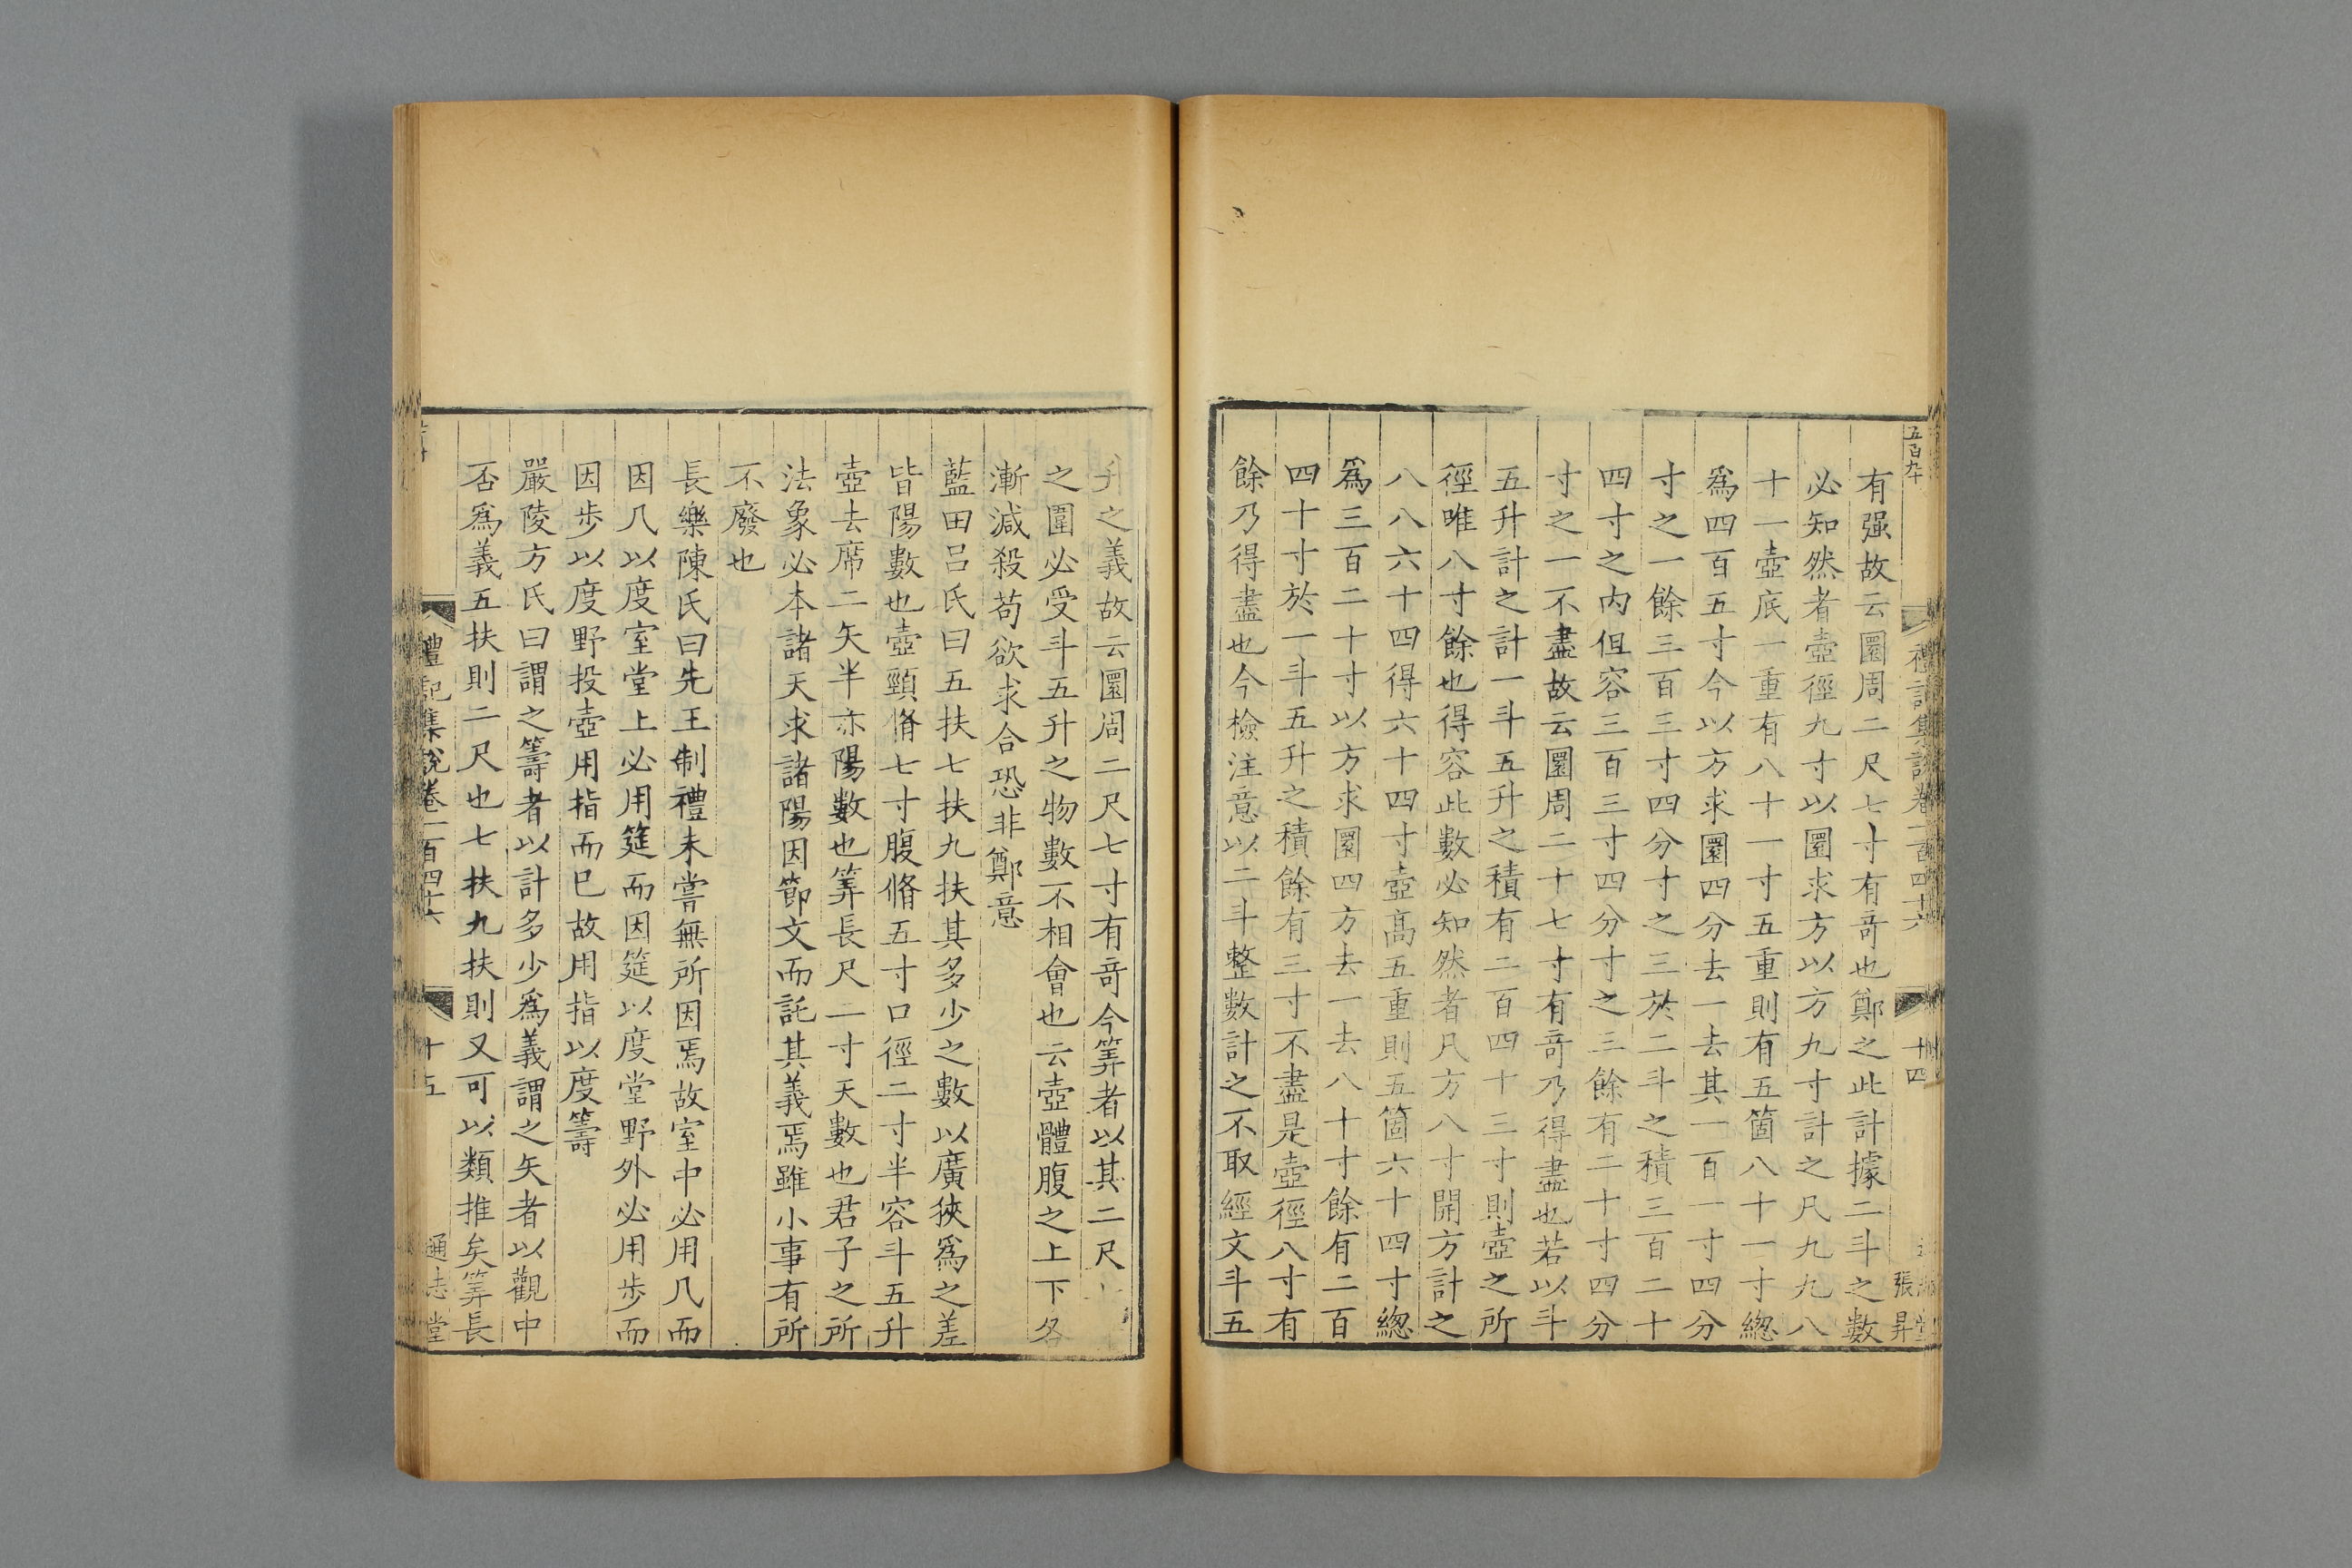 五百九十
禮記集說卷一百四十六
十四
張昇
有强故云圜周二尺七寸有竒也鄭之此計據二斗之數
必知然者壺徑九寸以圜求方以方九寸計之凡九九八
十一壺底一重有八十一寸五重則有五箇八十一寸緫
爲四百五寸今以方求圜四分去一去其一百一寸四分
寸之一餘三百三寸四分寸之三於二斗之積三百二十
四寸之内但容三百三寸四分寸之三餘有二十寸四分
寸之一不盡故云圜周二十七寸有竒乃得盡也若以斗
五升計之計一斗五升之積有二百四十三寸則壺之所
徑唯八寸餘也得容此數必知然者凡方八寸開方計之
八八六十四得六十四寸壺髙五重則五箇六十四寸緫
爲三百二十寸以方求圜四方去一去八十寸餘有二百
四十寸於一斗五升之積餘有三寸不盡是壺徑八寸有
餘乃得盡也今檢注意以二斗整數計之不取經文斗五
升之義故云圜周二尺七寸有竒今筭者以其二尺
之圍必受斗五升之物數不相會也云壺體腹之上下各
漸減殺苟欲求合恐非鄭意
藍田呂氏曰五扶七扶九扶其多少之數以廣狹爲之差
皆陽數也壺頸脩七寸腹脩五寸口徑二寸半容斗五升
壺去席二矢半亦陽數也筭長尺二寸天數也君子之所
法象必本諸天求諸陽因節文而託其義焉雖小事有所
不廢也
長樂陳氏曰先王制禮未嘗無所因焉故室中必用几而
因几以度室堂上必用筵而因筵以度堂野外必用歩而
因歩以度野投壺用指而已故用指以度籌
嚴陵方氏曰謂之籌者以計多少爲義謂之矢者以觀中
否爲義五扶則二尺也七扶九扶則又可以類推矣筭長
禮記集說卷一百四十六
十五
通志堂